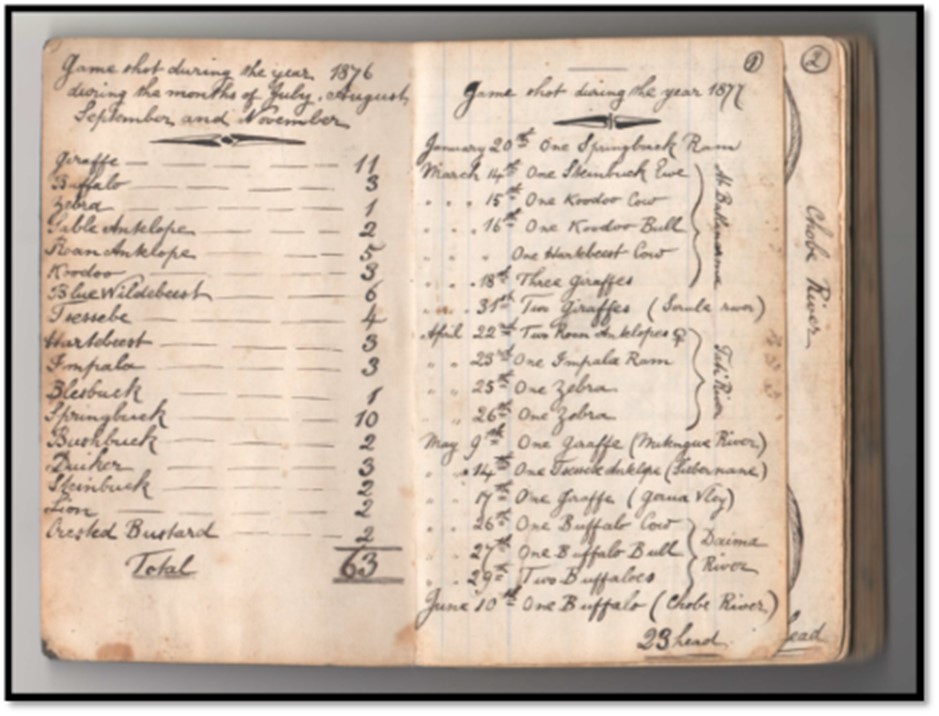 Game shot during the year 1876
during the months of July, August,
September and November
Giraffe 11
Buffalo 3
Zebra 1
Sable Antelope 2
Roan Antelope 5
Koodoo 3
Blue Wildebeest 6
Tsessebe 4
Hartebeest 3
Impala 3
Blesbuck 1
Springbuck 10
Bushbuck 2
Duiker 3
Steinbuck 2
Lion 2
Crested Bustard 2
Total 63
1
Game shot during the year 1877
January 20th One Springbuck Ram
March 14th One Steinbuck Ewe
" " 15th One Koodoo Cow
" " 16th One Koodoo Bull
" " " One Hartebeest Cow
" " 18th Three Giraffes
At
" " 31st Two Giraffes ( river)
April 22nd Two Roan Antelopes ♀
" 23rd One Impala Ram
" 25th One Zebra
" 26th One Zebra
Tati River
May 9th One Giraffe ( River)
" " 14th One Antelope ()
" " 17th One Giraffe ( Vley)
" " 26th One Buffalo Cow
" " 27th One Buffalo Bull
" " 29th Two Buffaloes
Daima
River
June 10th One Buffalo (Chobe River)
23 head
2
Chobe River
ead